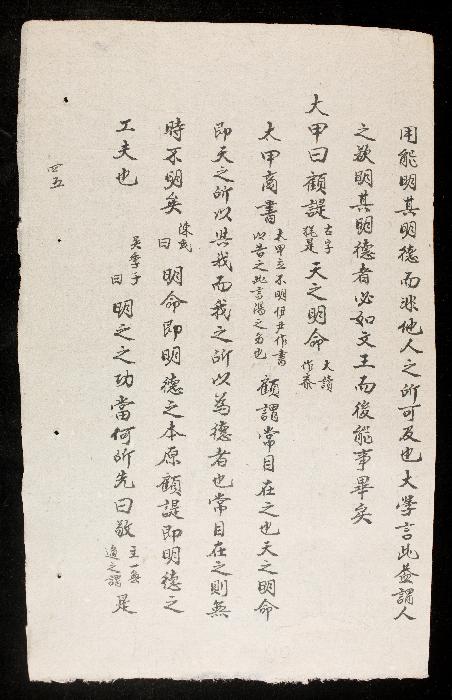 用能明其明德而非他人之所可及也大學言此蓋謂人
之欲明其明德者必如文王而後能事畢矣
大甲曰顧諟古字猶是天之明命大讀作泰
太甲商書太甲立不明伊尹作書以告之此言湯之事也顧謂常目在之也天之明命
即天之所以與我而我之所以為德者也常目在之則無
時不明矣陳氏曰明命即明德之本原顧諟即明德之
工夫也吳季子曰明之之功當何所先曰敬主一無適之謂是
四五